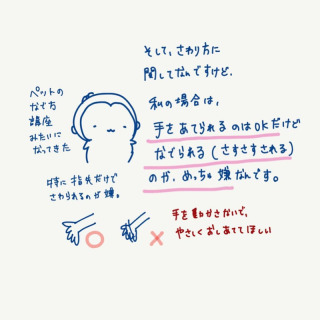 そして、さわり方に
関してなんですけど、
私の場合は、
手をあてられるのはOKだけど
なでられる(さすさすされる)
のが、めっちゃ嫌なんです。
ペットの
なで方
講座
みたいに
なってきた
特に指先だけで
さわられるのが嫌。
手を動かさないで、
やさしくおしあててほしい